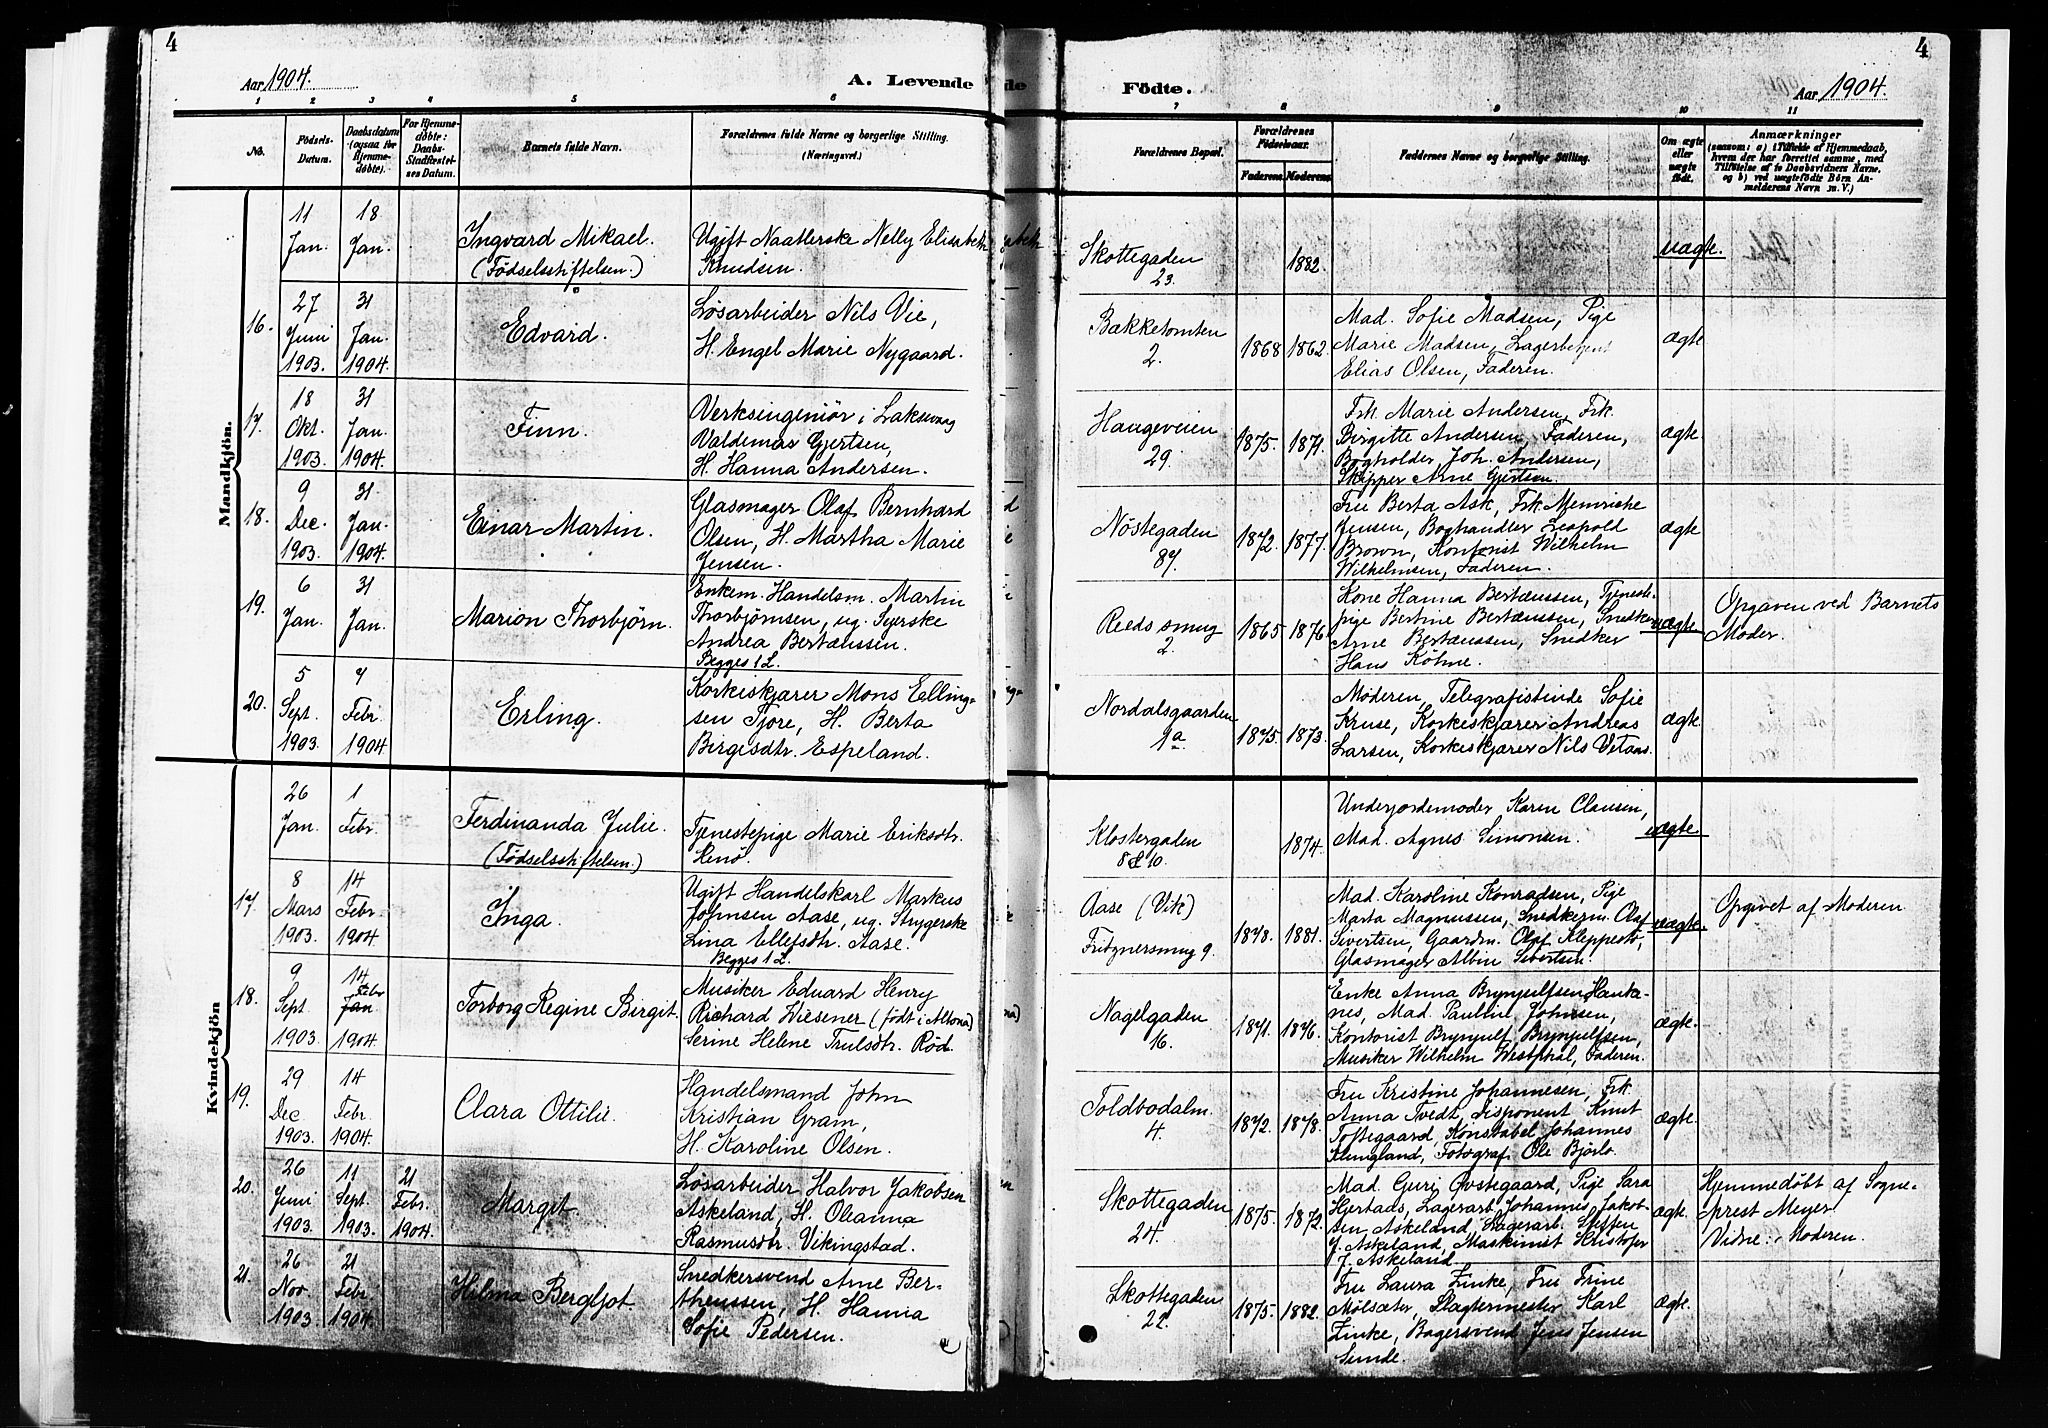 4
Aar 1904.
A. Levende
1 2 3 4 5 6
No.
Födsels-
Datum.
Daabsdatum
(ogsaa for
Hjemme-
døbte).
For Hjemme-
døbte:
Daabs-
Stadfæstel-
ses Datum.
Barnets fulde Navn.
Forældrenes fulde Navne og borgerlige Stilling.
(Næringsvei.)
Mandkjön.
11
Jan.
18
Jan.
Ingvard Mikael.
(Fødselsstiftelsen.)
Ugift Naatlerske Nelly Elisabeth
Knudsen.
16.
27
Juni
1903.
31
Jan.
1904.
Edvard.
Løsarbeider Nils Vie,
H. Engel Marie Nygaard.
17.
18
Okt.
1903.
31
Jan.
1904.
Finn.
Verksingeniør i Laksevaag
Valdemar Gjertsen,
H. Hanna Andersen.
18.
9
Dec.
1903.
31
Jan.
1904.
Einar Martin.
Glasmager Olaf Bernhard
Olsen, H. Martha Marie
Jensen.
19.
6
Jan.
31
Jan.
Marion Thorbjørn.
Enkem. Handelsm. Martin
Thorbjørnsen, ug. Syerske
Andrea Bertæussen.
Begges 1 L.
20.
5
Sept.
1903.
7
Febr.
1904
Erling.
Korkeskjærer Mons Elling-
sen Tjore, H. Berta
Birgesdtr. Espeland.
Kvindekjön
26
Jan.
1
Febr.
Ferdinanda Julie.
(Fødselsstiftelsen.)
Tjenestepige Marie Eriksdtr.
Renø.
17.
8
Mars
1903.
14
Febr.
1904
Inga.
Ugift Handelskarl Markus
Johnsen Aase, ug. Strygerske
Lina Ellefsdtr. Aase.
Begges 1 L.
18.
9
Sept.
1903.
14
Febr
Jan.
1904
Torborg Regine Birgit.
Musiker Eduard Henry
Richard Wiesener (født i Altona)
Serine Helene Trulsdtr. Rød.
19.
29
Dec
1903.
14
Febr.
1904.
Clara Ottilie.
Handelsmand John
Kristian Gram,
H. Karoline Olsen.
20.
26
Juni
1903.
11
Sept.
1903.
21
Febr.
1904.
Margit.
Løsarbeider Halvor Jakobsen
Askeland, H. Oleanna
Rasmusdtr. Vikingstad.
21.
26
Nov.
1903.
21
Febr.
1904.
Hilma Bergljot.
Snedkersvend Arne Ber-
theussen, H. Hanna
Sofie Pedersen.
4
Födte.
Aar 1904.
7 8 9 10 11
Forældrenes Bopæl.
Forældrenes
Födselsaar.
Faderens. Moderens.
Faddernes Navne og borgerlige Stilling.
Om ægte
eller
uægte
født.
Anmærkninger
(saasom: a) i Tilfælde af Hjemmedaab,
hvem der har forrettet samme, med
Tilföielse af to Daabsvidners Navne,
og b) ved uægtefödte Börn An-
melderens Navn m. V.)
Skottegaden
23.
1882.
uægte.
Bakketomten
2.
1868 1862.
Mad. Sofie Madsen, Pige
Marie Madsen, Lagerbetjent
Elias Olsen, Faderen.
ægte
Haugeveien
29.
1875. 1871.
Frk. Marie Andersen, Frk.
Birgitte Andersen, Faderen,
Bogholder Joh. Andersen,
Skipper Arne Gjertsen.
ægte
Nøstegaden
87.
1872. 1877.
Fru Berta Ask, Frk. Henrikke
Jensen, Boghandler Leopold
Brown, Kontorist Wilhelm
Wilhelmsen, Faderen.
ægte
Reeds smug
2.
1865 1876.
Kone Hanna Bertæussen, Tjeneste-
pige Bertine Bertæussen, Snedker
Arne Bertæussen, Snedker
Hans Köhne.
uægte
Opgaven ved Barnets
Moder.
Nordalsgaarden
1a.
1875. 1873.
Moderen, Telegrafistinde Sofie
Kruse, Korkeskjærer Andreas
Larsen, Korkeskjærer Nils Vetaas.
ægte.
Klostergaden
8 & 10.
1874.
Underjordemoder Karen Clausen,
Mad. Agnes Simonsen.
uægte
Aase (Vik)
Fritznersmug 9.
1878. 1881.
Mad. Karoline Konradsen, Pige
Marta Magnussen, Snedkerm. Olaf
Sivertsen, Gaardm. Olaf Kleppestø,
Glasmager Albin Sivertsen.
uægte.
Opgivet af Moderen
Nagelgaden
16.
1871. 1876.
Enke Anna Brynjulfsen Hauka-
nes, Mad. Pauline Johnsen,
Kontorist Brynjulf Brynjulfsen,
Musiker Wilhelm Westphal, Faderen.
ægte.
Toldbodalm.
4.
1872. 1878.
Fru Kristine Johannesen, Frk.
Anna Tvedt, Disponent Knut
Toftegaard, Konstabel Johannes
Klungland, Fotograf Ole Bjørlo.
ægte.
Skottegaden
24.
1875. 1872.
Mad Guri Øvstegaard, Pige Sara
Hjertads, Lagerarb. Johannes Jakob-
sen Askeland, Lagerarb. Steffen
J. Askeland, Maskinist Kristofer
J. Askeland.
ægte.
Hjemmedøbt af Sogne-
prest Meyer
Vidne: Moderen.
Skottegaden
22.
1875. 1882.
Fru Laura Finke, Fru Trine
Mølsæter, Slagtermester Karl
Finke, Bagersvend Jens Jensen
Sunde.
ægte.